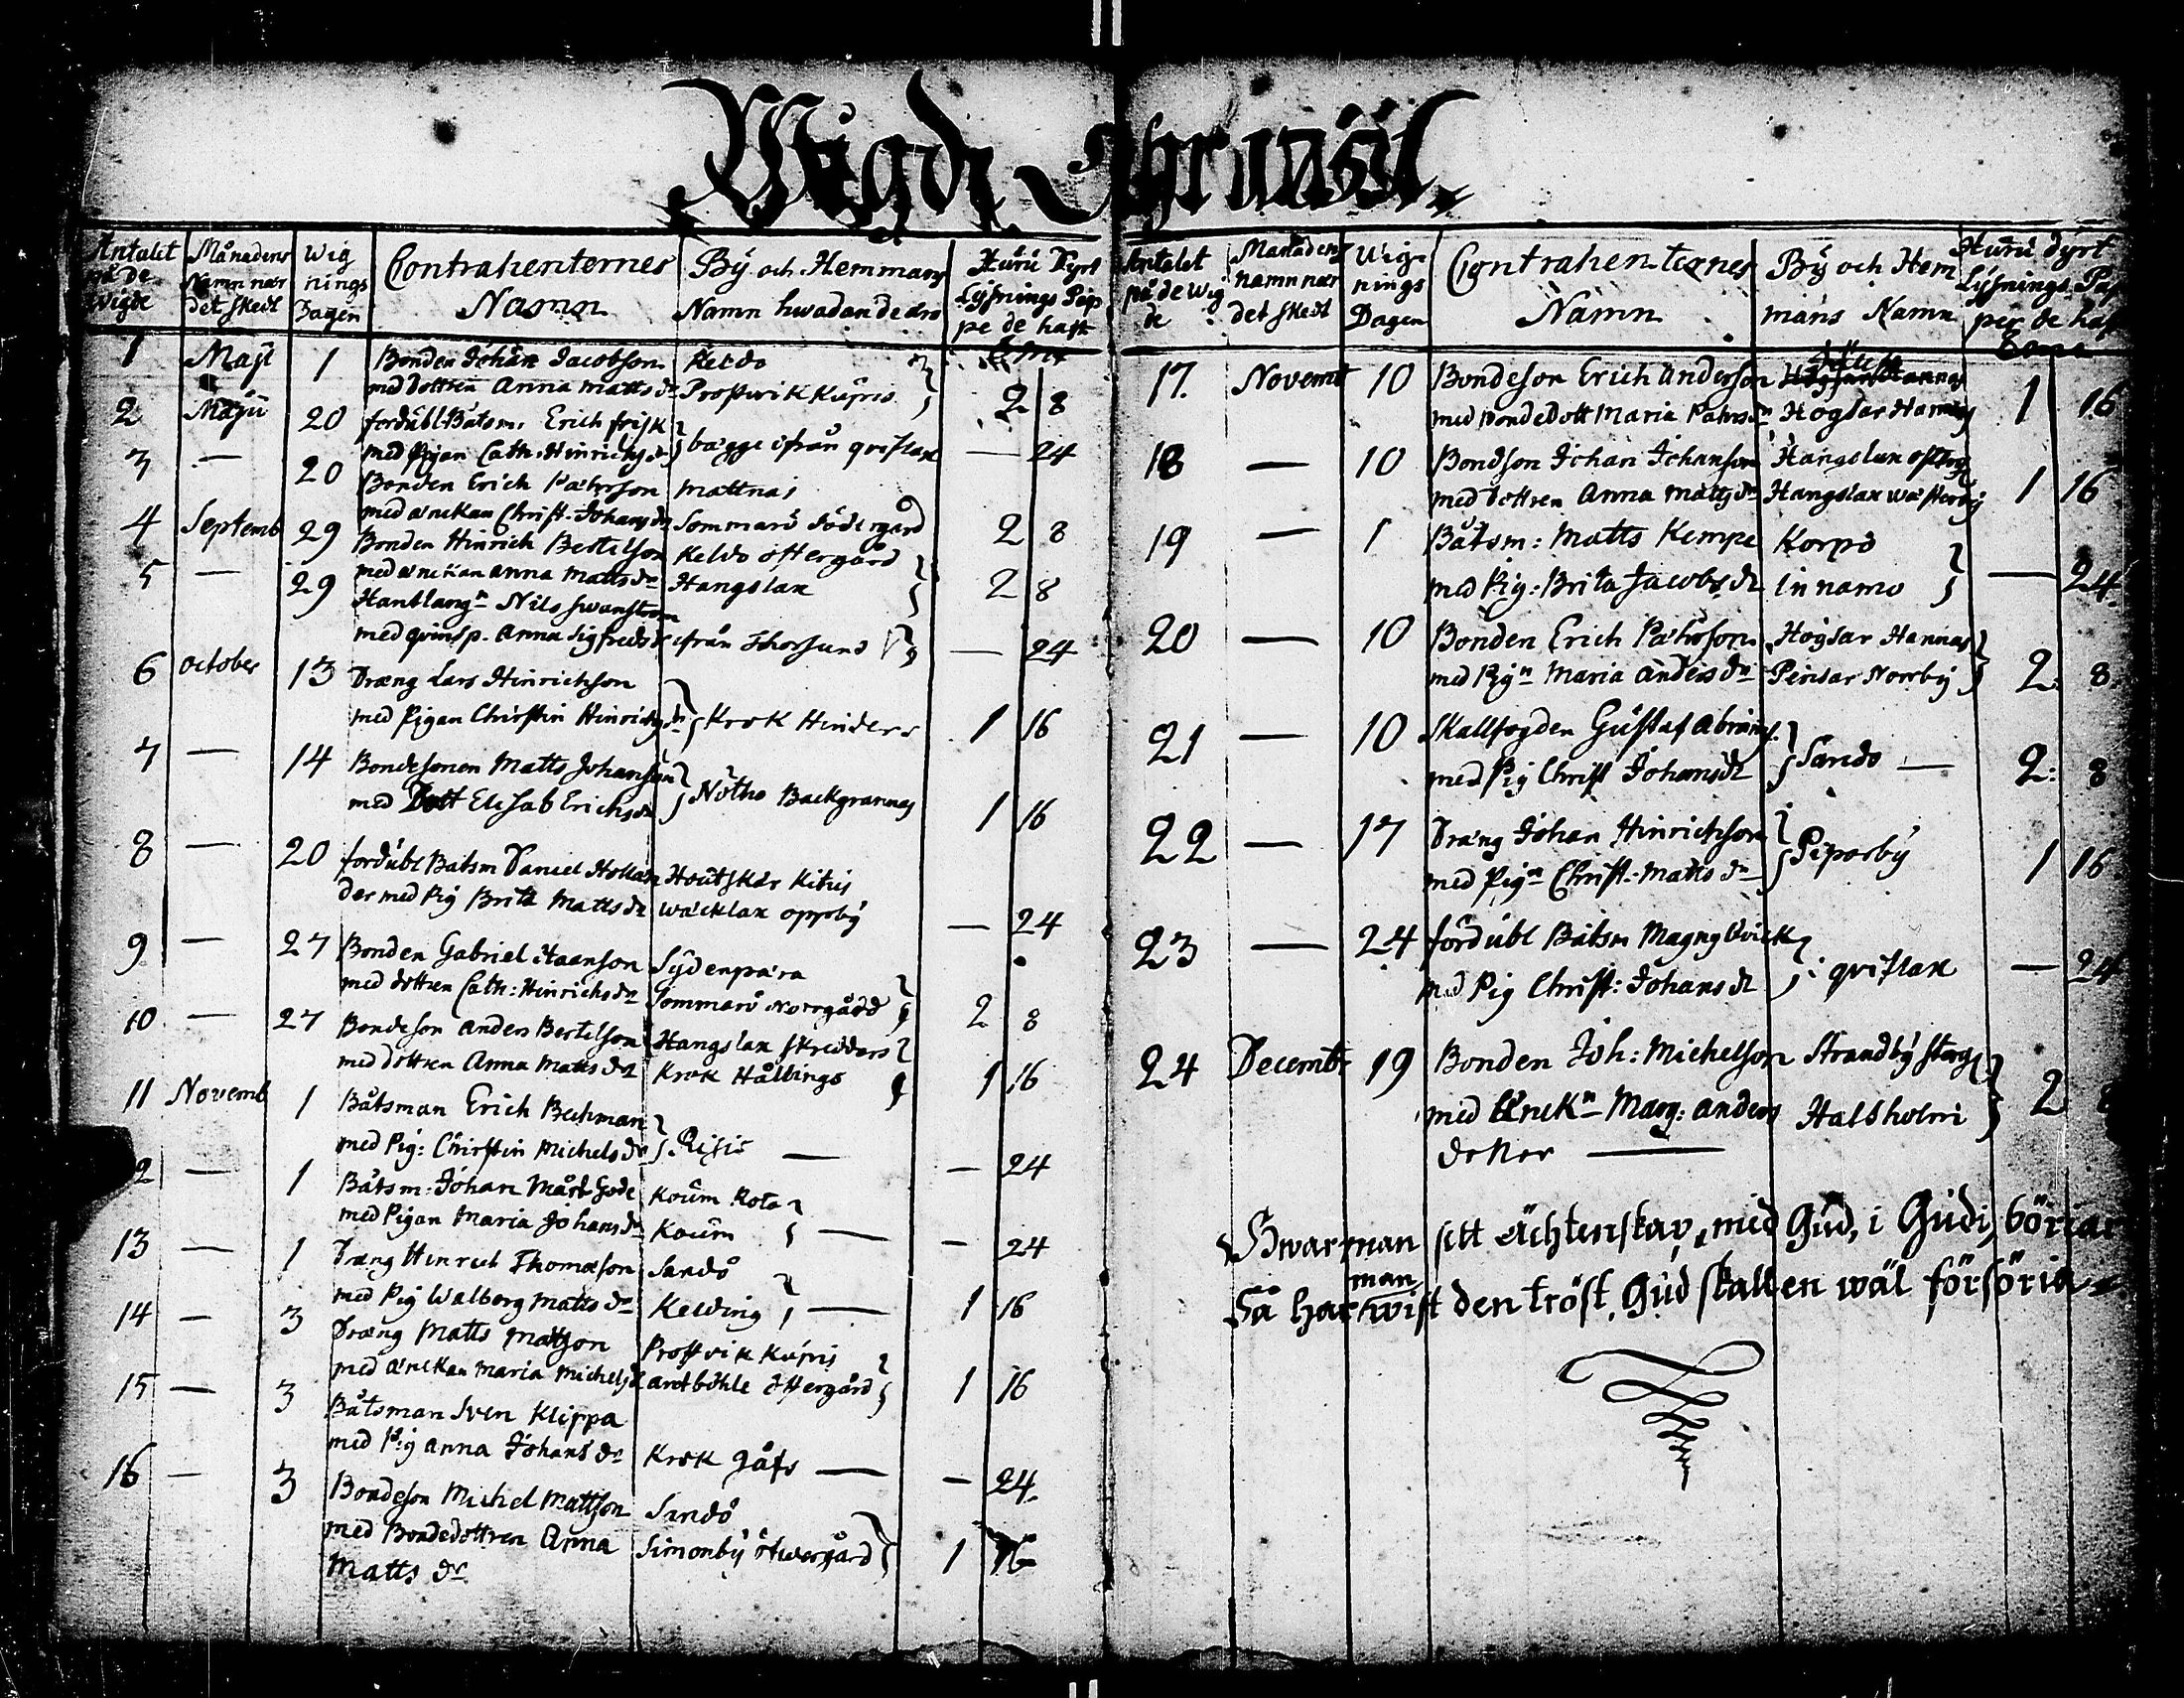 Wigde
Antalet på de Wigde | Månadens Namn när det skedt | Wignings Dagen | Contrahenternes Namn | By och Hemmans Namn hwadan de äro | Huru Dyrt Lysnings Pappe de haft
1 Maji 1 Bonden Johan Jacobson Keldo
med dottren Anna Matts dr Prostvik Kupris 2 8
2 Maji 20 fordubl Båtsm. Erich frisk
med Pigan Cath. Hinrichs dr bägge ifrån qvislax — 24
3 — 20 Bonden Erich Pährson Mattnäs
med änckan Christ. Johans dr Sommarö Södergård 2 8
4 Septemb 29 Bonden Hinrich Bertelson Keldo östergård
med änckan Anna Matts dr Hangslax 2 8
5 — 29 Hantlangn Nils Swanström
med qvinsp. Anna Sigfreds dr ifrån Thorsund — 24
6 October 13 Dräng Lars Hinrichson
med Pigan Christin Hinrichs dr Krok Hinders 1 16
7 — 14 Bondesonen Matts Johanson
med Dott Elisab Erichs dr Nötho Backgrannas 1 16
8 — 20 fordubl Båtsm Daniel Hollän Houtskär Kitius
der med Pig Brita Matts dr wäcklax oppby — 24
9 — 27 Bonden Gabriel Haanson Sydenpära
med dottren Cath: Hinrichs dr Sommarö Norrgård 2 8
10 — 27 Bondeson Anders Bertelson Hangslax skredders
med dottren Anna Matts dr Krok Hålbings 1 16
11 Novemb 1 Båtsman Erich Beckman
med Pig: Christin Michels dr Risis — — 24
2 — 1 Båtsm: Johan Mårt Gode Koum Rota
med Pigan Maria Johans dr Koum — — 24
13 — 1 Dräng Hinrich Thomason Sandö
med Pig Walborg Matts dr Kelding — 1 16
14 — 3 Dräng Matts Matson Prostvik Kupris
med änckan Maria Michels dr antböhle östergård 1 16
15 — 3 Båtsman Sven Klippa
med Pig Anna Johans dr Krok Gåfs — — 24
16 — 3 Bondeson Michel Mattson Sandö
med Bondedottren Anna Simonby öfwergård 1 16
Matts dr
Antalet på de Wigde | Månadens namn när det skedt | Wignings Dagen | Contrahenternes Namn | By och Hemmans Namn | Huru dyrt Lysnings Pappe de haft
17. Novemb 10 Bondeson Erich Anderson
med Bondedott Maria Pährs dr Hogsar Hannas 1 16
18 — 10 Bondson Johan Johanson Hangslax
med dottren Anna Matts dr Hangslax wästerby 1 16
19 — 1 Båtsm: Matts Kempe Korpo
med Pig: Brita Jacobs dr Innamo — 24
20 — 10 Bonden Erich Pährson Hogsar Hannas
med Pign Maria Anders dr Pensar Norrby 2 8
21 — 10 Skallfogden Gustaf Abrams
med Pig Christ Johans dr Sando — 2 8
22 — 17 Dräng Johan Hinrichson
med Pign Christ: Matts dr Piparby 1 16
23 — 24 fördubl Båtsm Magng Qvick
med Pig Christ: Johans dr i qvislax — 24
24 Decemb 19 Bonden Joh: Michelson Strandby storg
med Enckn Marg: Anders Halsholm 2 8
dotter —
Hwar man sitt Ächtenskap, med Gud, i Gudi, böriar
Så har man wist den tröst, Gud skall en wäl försöria